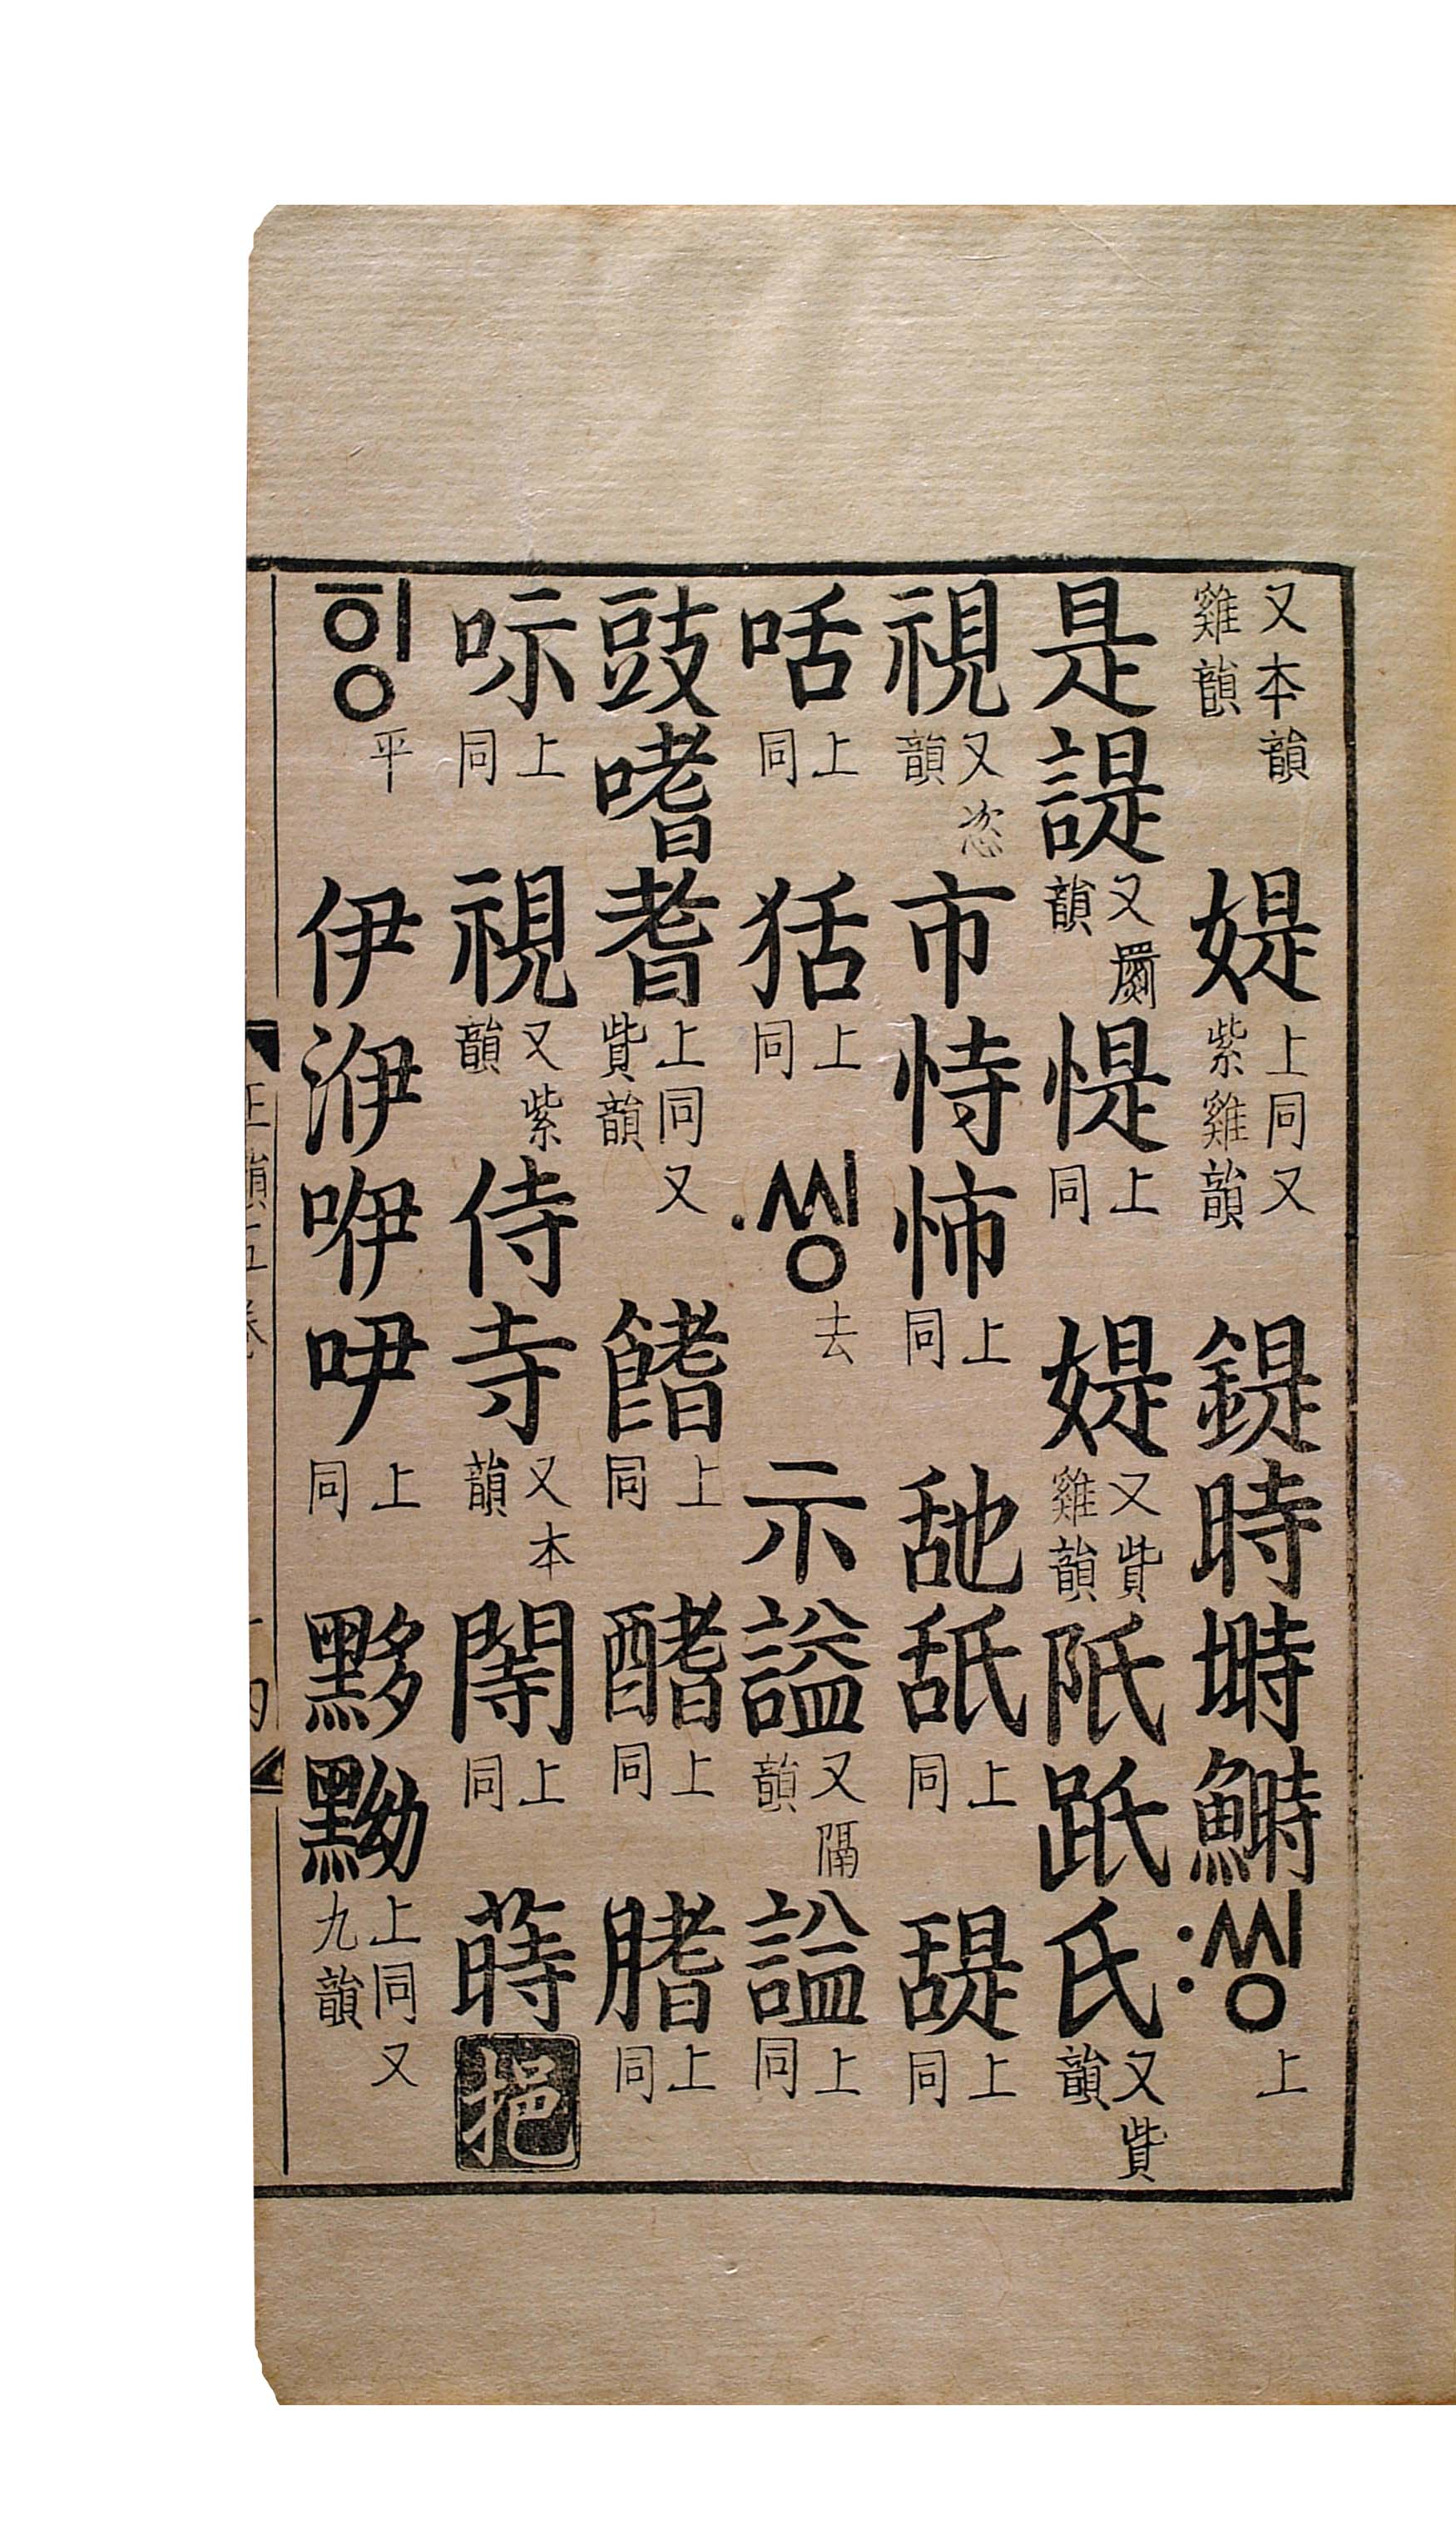 又本韻雞韻 媞 上同又紫雞韻 鍉 時 塒 鰣 〯씽 上
是 諟 又罽韻 惿 上同 媞 又貲雞韻 氏 又貲韻
視 又恣韻 市 恃 上同 舐 上同 上同
咶 上同 狧 上同 〮씽 去 示 謚 又隔韻 諡 上同
豉 嗜 耆 上同又貲韻 上同 上同 上同
呩 上同 視 又紫韻 侍 寺 又本韻 上同 蒔 挹
ᅙᅵᆼ 平 伊 洢 咿 吚 上同 黟 黝 上同又九韻